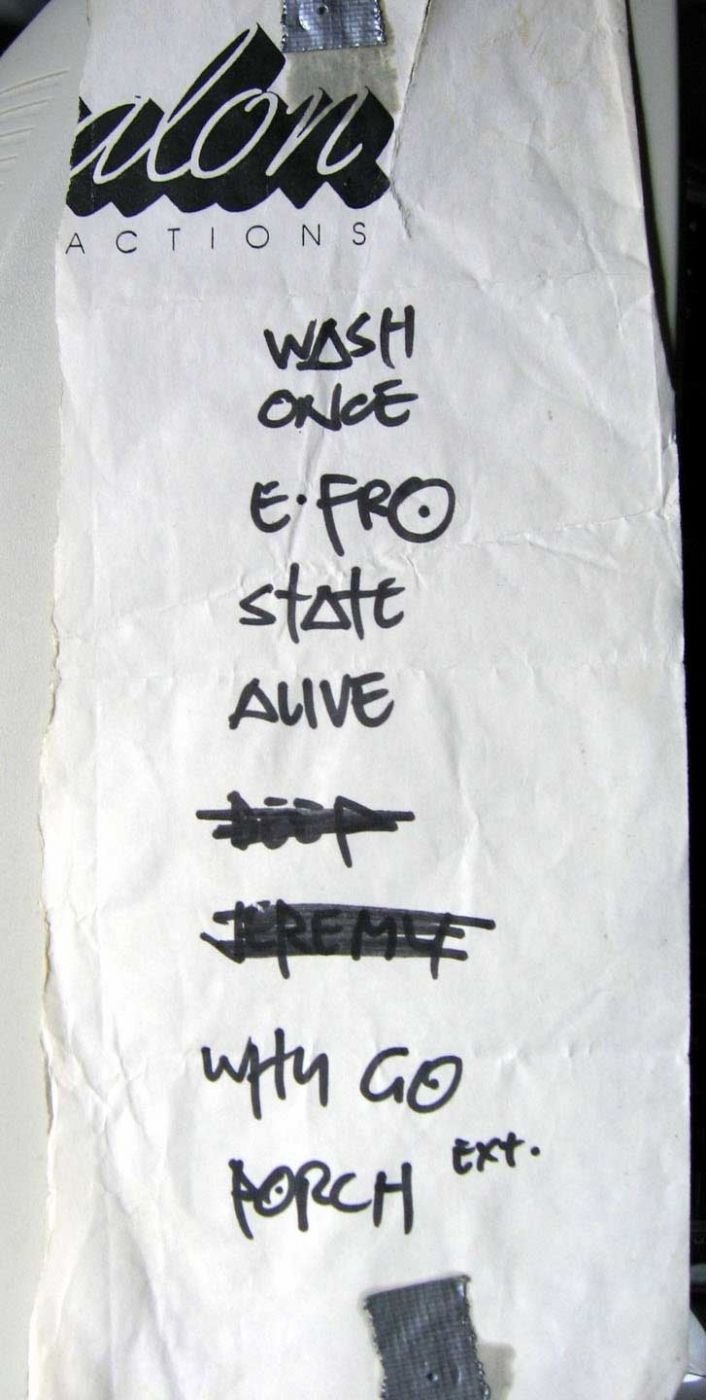 alon
ACTIONS
WASH
ONCE
E·FRO
StAtE
ALIVE
DEEP
JEREMY
WHY GO
PORCH EXT.